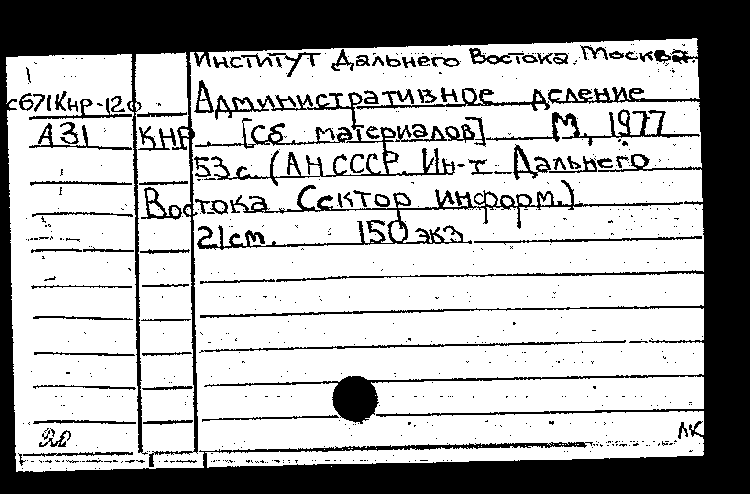 Институт Дальнего Востока, Москва.
с671Кнр-12о Административное деление
А31 КНР. [Сб. материалов] М., 1977
53 с. (АН СССР. Ин-т Дальнего
Востока. Сектор информ.)
21 cm. 150 экз.
ЛК